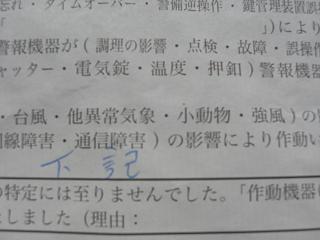 忘れ・タイムオーバー・警備逆操作・鍵管理装置誤
」)により
警報機器が(調理の影響・点検・故障・誤操作
ャッター・電気錠・温度・押釦)警報機器
・台風・他異常気象・小動物・強風)の影
回線障害・通信障害)の影響により作動い
下記
の特定には至りませんでした。「作動機器
としました(理由: